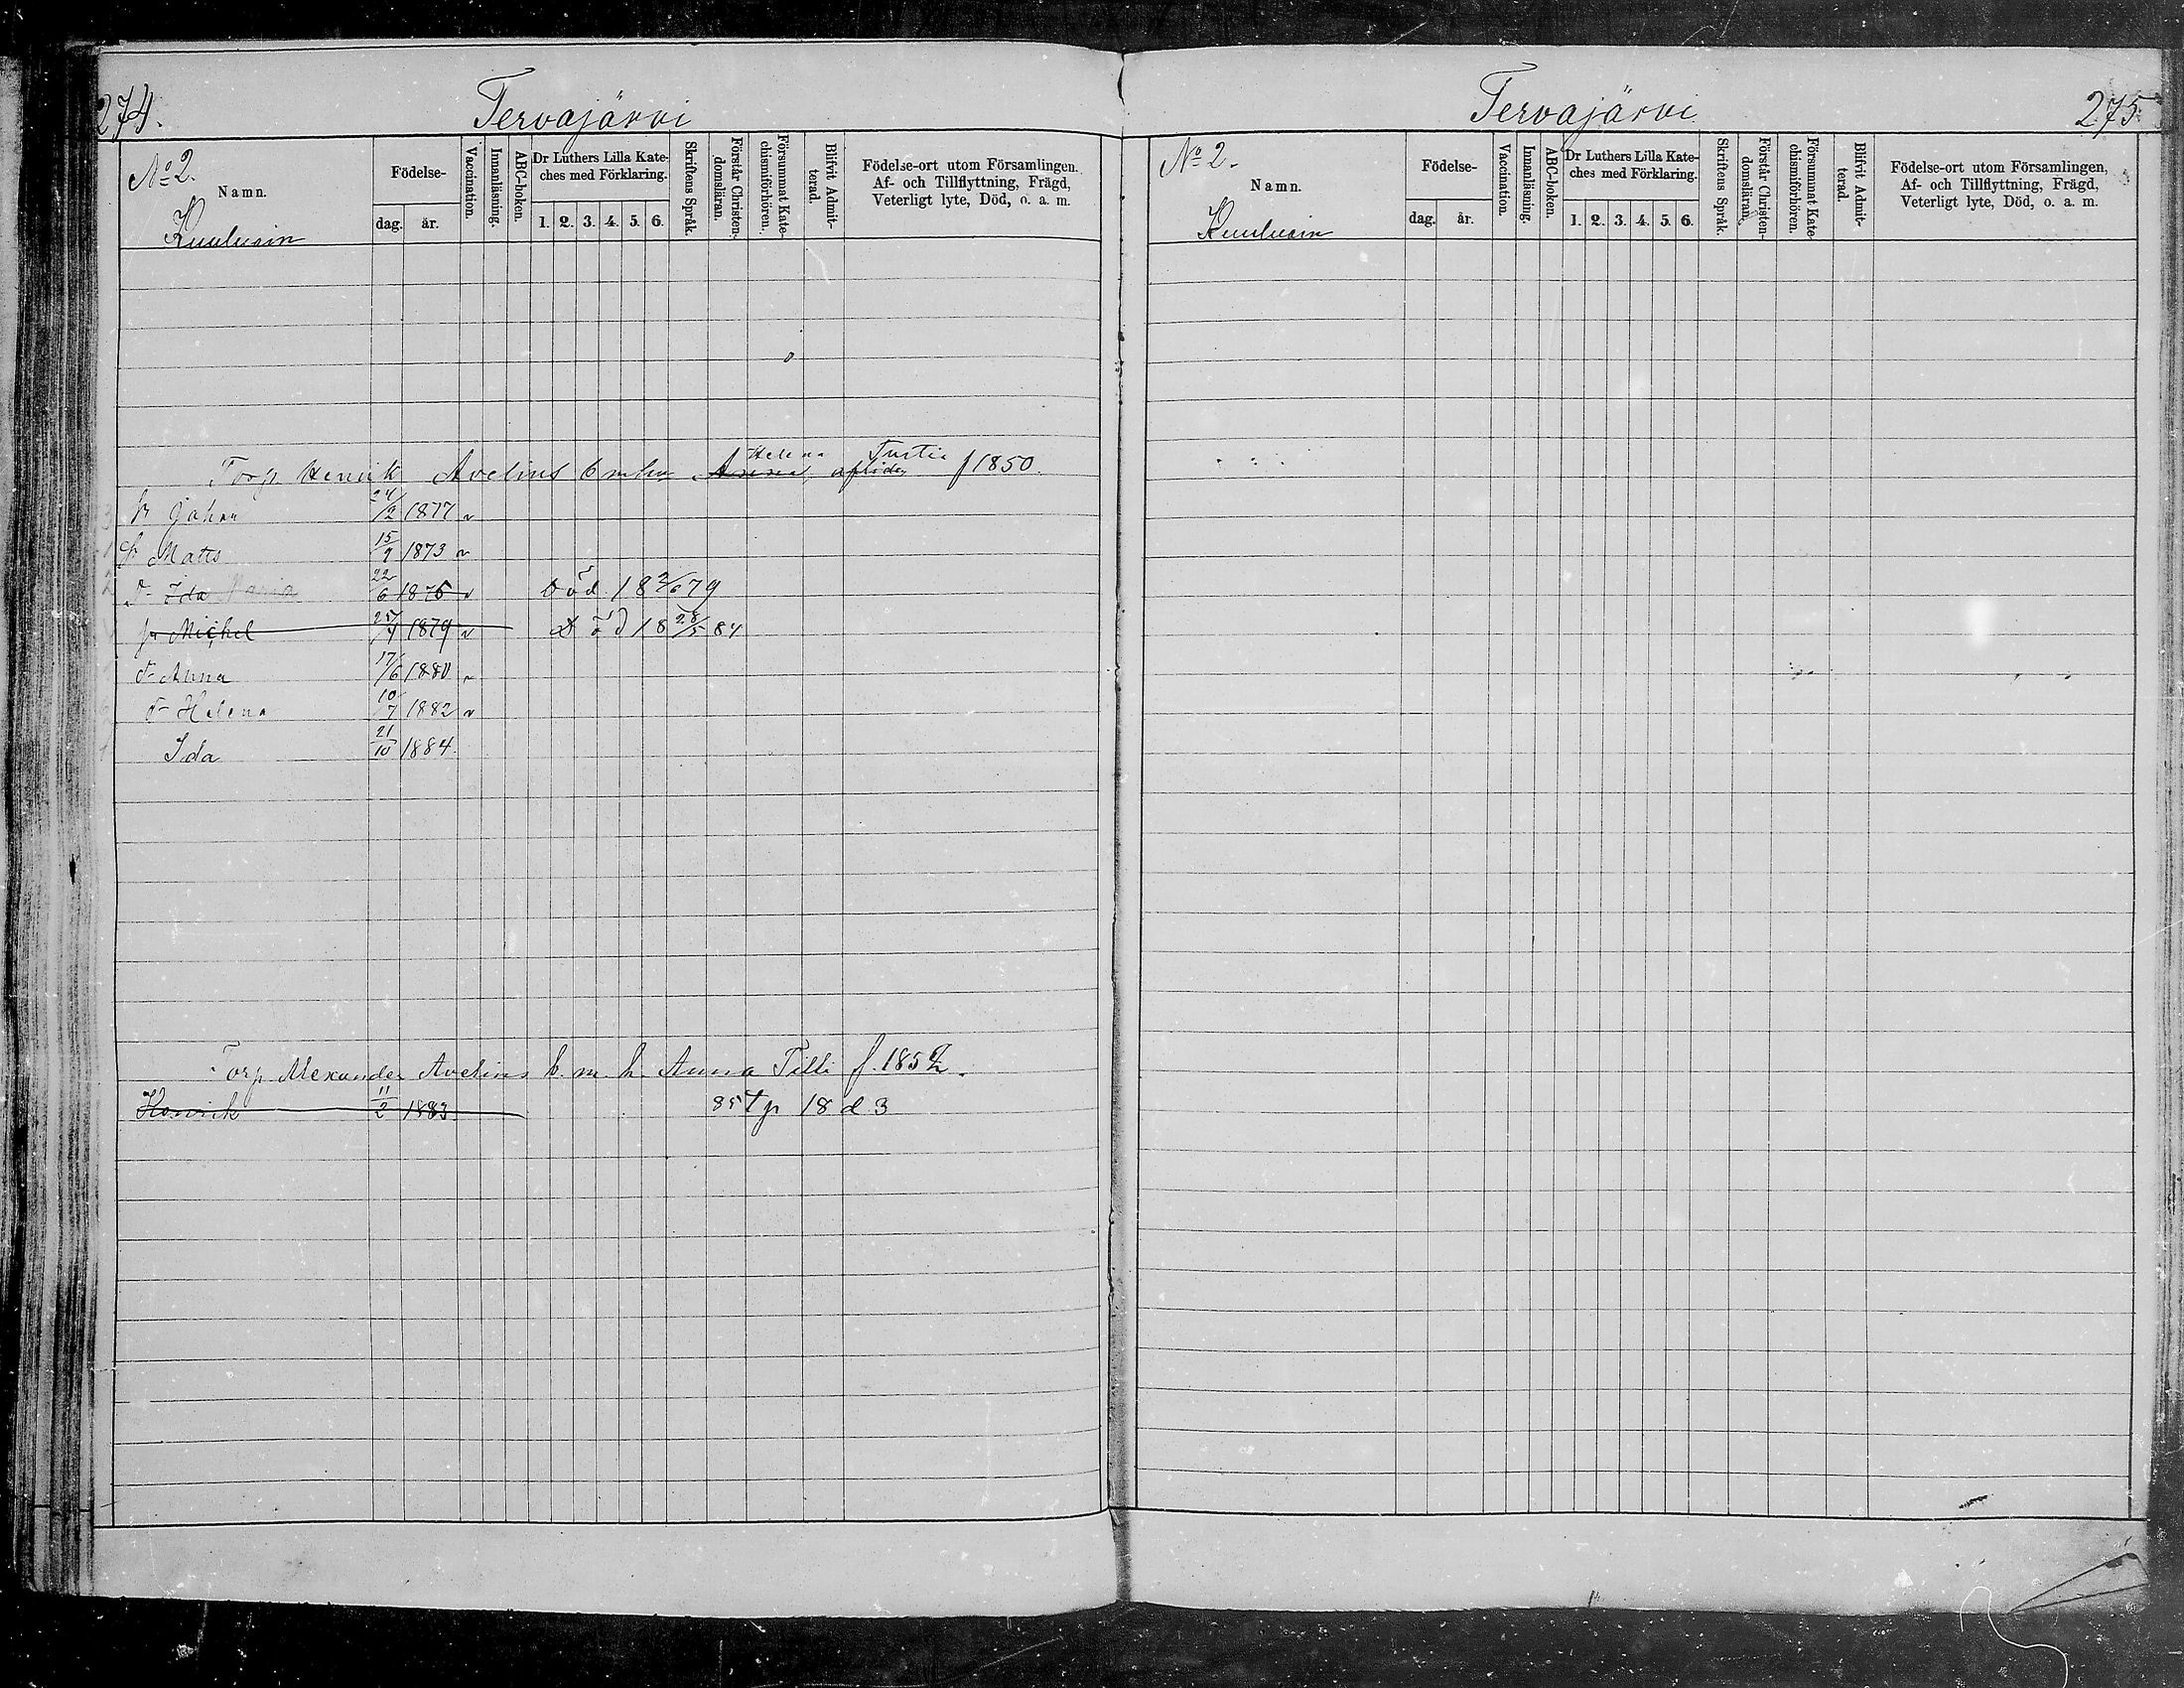 274.
Tervajärvi
No 2.
Namn.
Kuulusin
Födelse-
dag. år.
Vaccination.
Innanläsning.
ABC-boken.
Dr Luthers Lilla Kate-
ches med Förklaring.
1. 2. 3. 4. 5. 6.
Skriftens Språk.
Förstår Christen-
domsläran.
Försummat Kate-
chismiförhören.
Blifvit Admit-
terad.
Födelse-ort utom Församlingen.
Af- och Tillflyttning, Frägd,
Veterligt lyte, Död, o. a. m.
Helena Tustia
Torp. Henrik Avelius b m hu Anna, afliden f 1850.
3 Johan 24/2 1877 v
1 Matts 15/9 1873 v
2 Dr Ida Maria 22/6 1875 v Död 18 2/6 79
Michel 25/4 1879 v Död 18 28/5 84
Dr Anna 17/6 1880 v
6 Dr Helena 10/7 1882 v
Ida 21/10 1884
Torp Alexander Avelius b. m. h. Anna Tilli f. 1852.
Henrik 11/2 1883 85 tp 18 d 3
Tervajärvi
275
No 2.
Namn.
Kuulusin
Födelse-
dag. år.
Vaccination.
Innanläsning.
ABC-boken.
Dr Luthers Lilla Kate-
ches med Förklaring.
1. 2. 3. 4. 5. 6.
Skriftens Språk.
Förstår Christen-
domsläran.
Försummat Kate-
chismiförhören.
Blifvit Admit-
terad.
Födelse-ort utom Församlingen,
Af- och Tillflyttning, Frägd,
Veterligt lyte, Död, o. a. m.